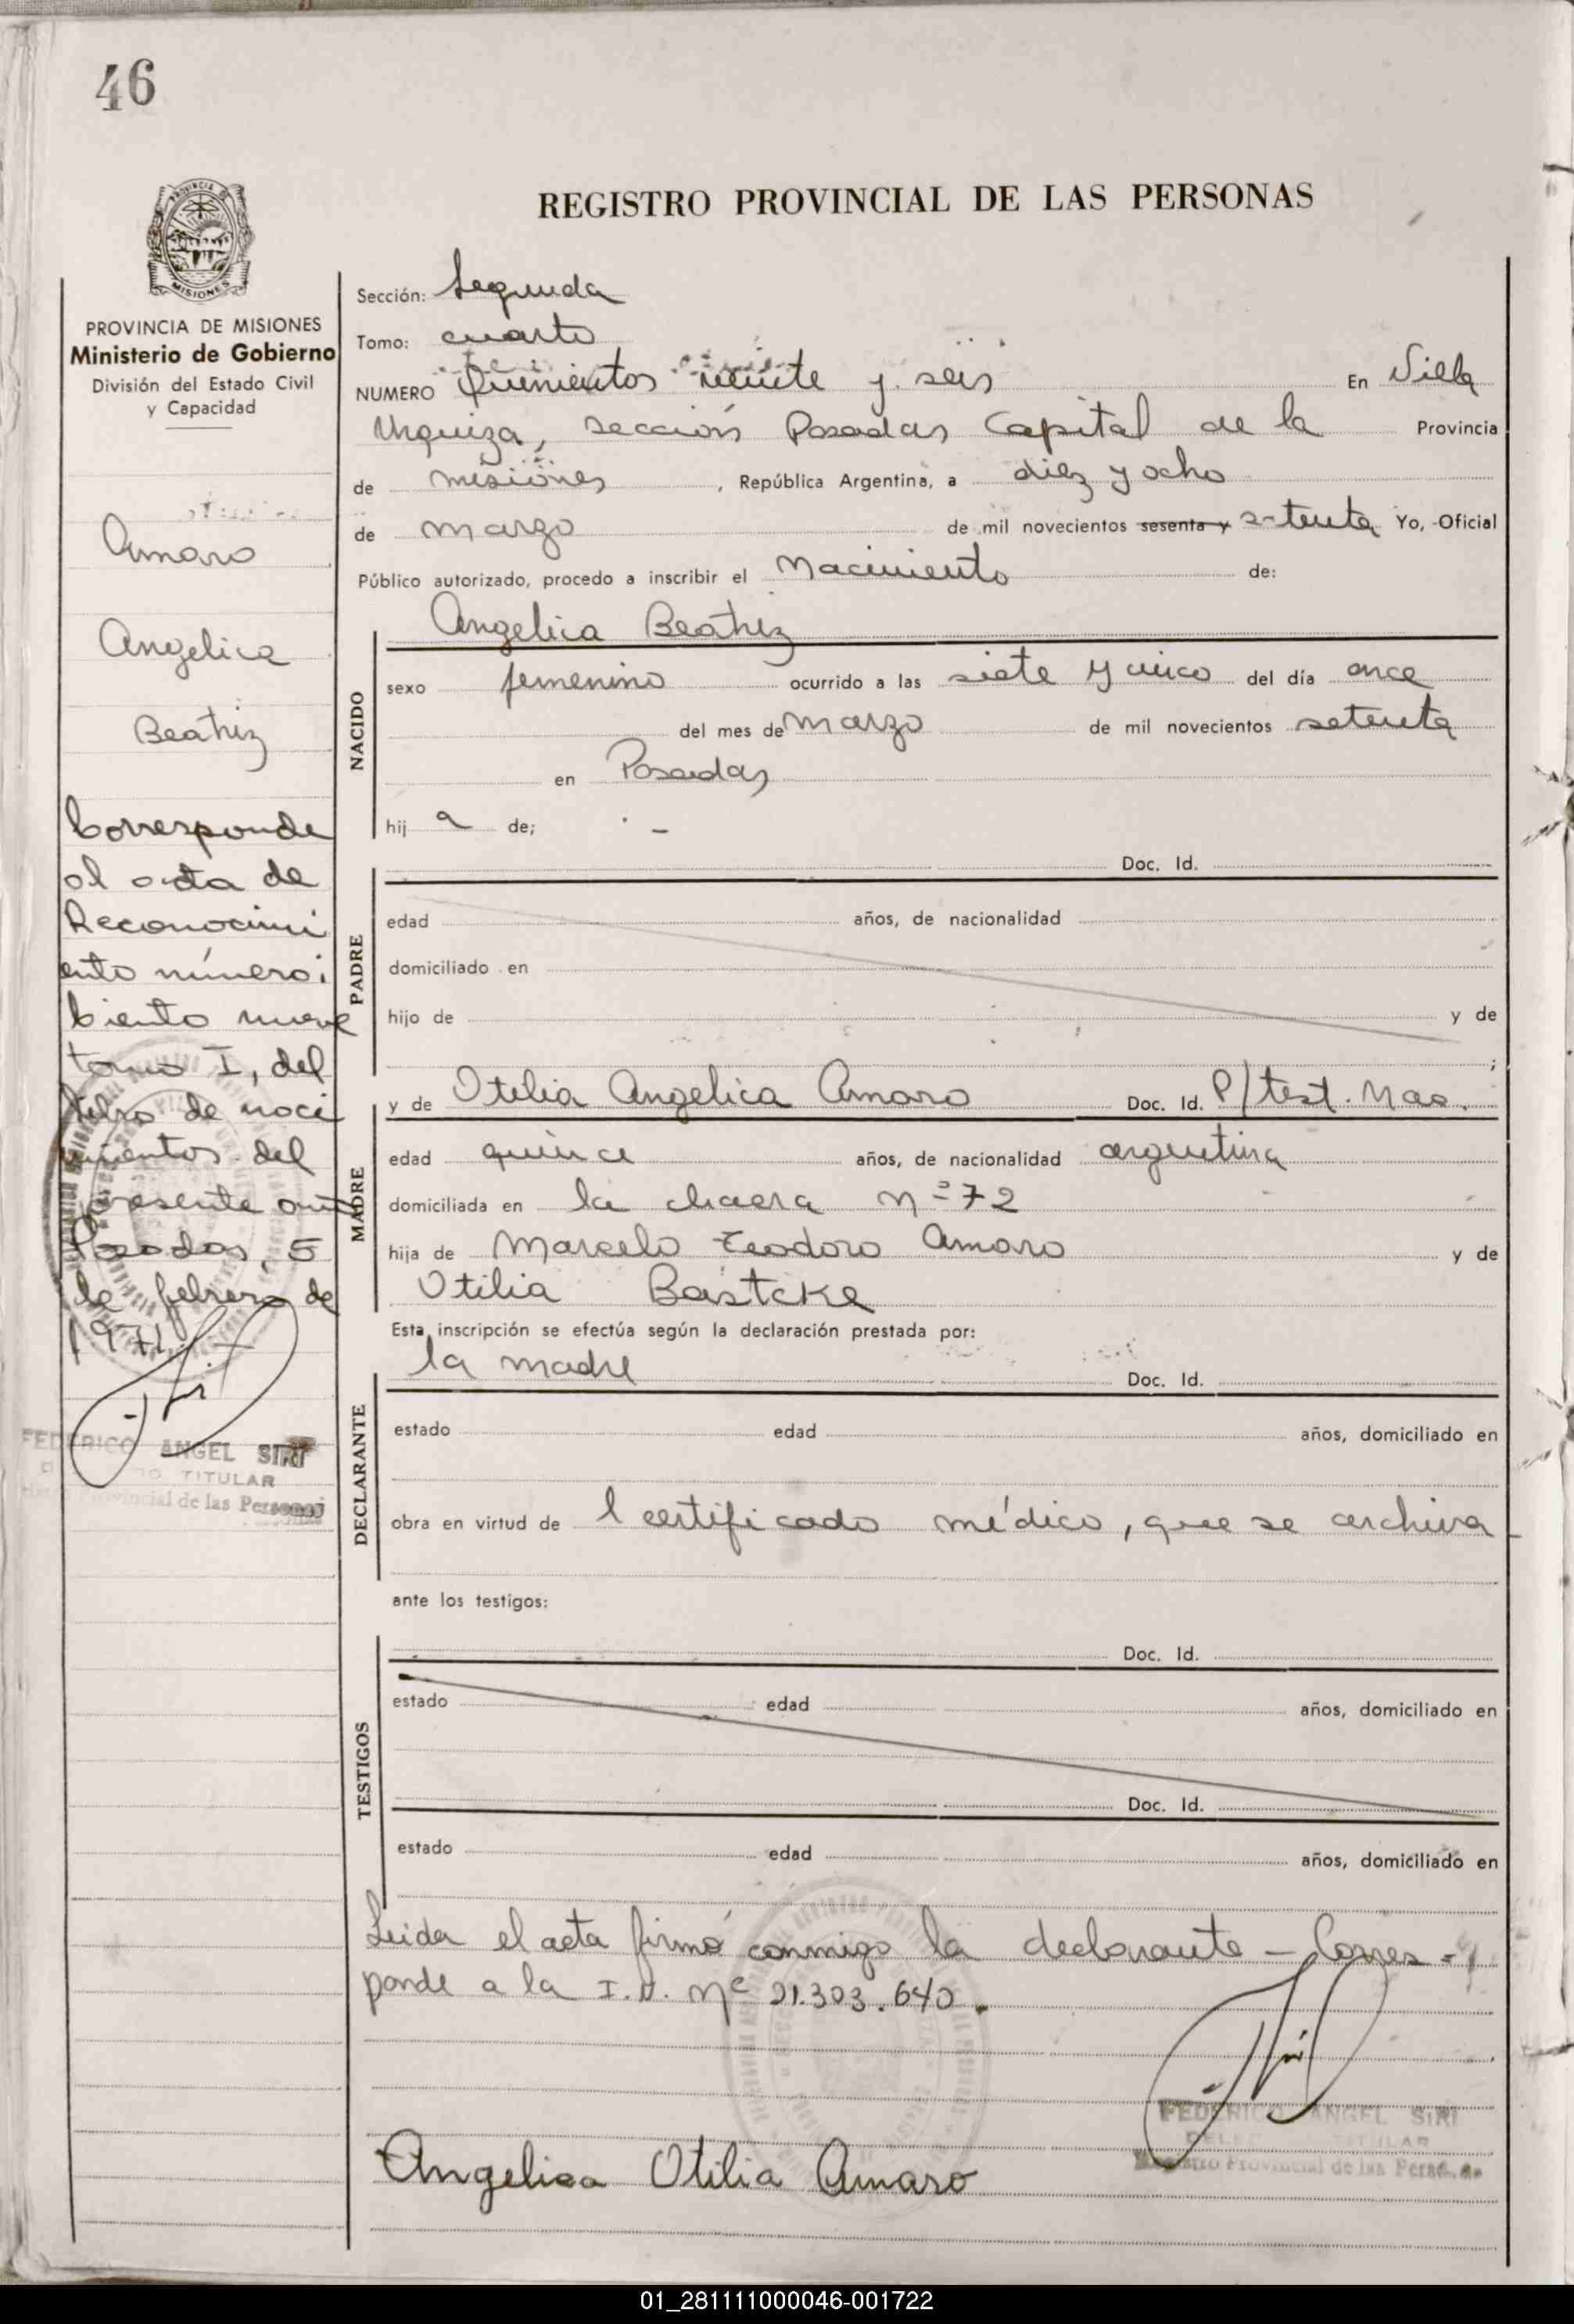 46
REGISTRO PROVINCIAL DE LAS PERSONAS
PROVINCIA DE MISIONES
Ministerio de Gobierno
División del Estado Civil
y Capacidad
Amaro
Angelica
Beatriz
Corresponde
al acta de
Reconocimi
ento número:
Ciento nueve
tomo I, del
libro de naci
mientos del
presente año
Posadas, 5
de febrero de
1971.
FEDERICO ANGEL SIRI
TITULAR
Provincial de las Personas
Sección: Segunda
Tomo: cuarto
NUMERO Quinientos veinte y seis En Villa
Urquiza, sección Posadas Capital de la Provincia
de misiones, República Argentina, a diez y ocho
de marzo de mil novecientos sesenta y setenta Yo, Oficial
Público autorizado, procedo a inscribir el Nacimiento de:
NACIDO
Angelica Beatriz
sexo femenino ocurrido a las siete y cinco del día once
del mes de marzo de mil novecientos setenta
en Posadas
hij a de; -
PADRE
Doc. Id.
edad años, de nacionalidad
domiciliado en
hijo de y de
;
MADRE
y de Otilia Angelica Amaro Doc. Id. P/test. Nac.
edad quince años, de nacionalidad argentina
domiciliada en la chacra nº 72
hija de Marcelo Teodoro Amaro y de
Otilia Bastcke
Esta inscripción se efectúa según la declaración prestada por:
DECLARANTE
la madre Doc. Id.
estado edad años, domiciliado en
obra en virtud de l certificado médico, que se archiva
ante los testigos:
TESTIGOS
Doc. Id.
estado edad años, domiciliado en
Doc. Id.
estado edad años, domiciliado en
Leida el acta firmó conmigo la declarante - Corres =
ponde a la I.D. Nº 21.303.640.
FEDERICO ANGEL SIRI
TITULAR
Registro Provincial de las Perso
Angelica Otilia Amaro
01_281111000046-001722